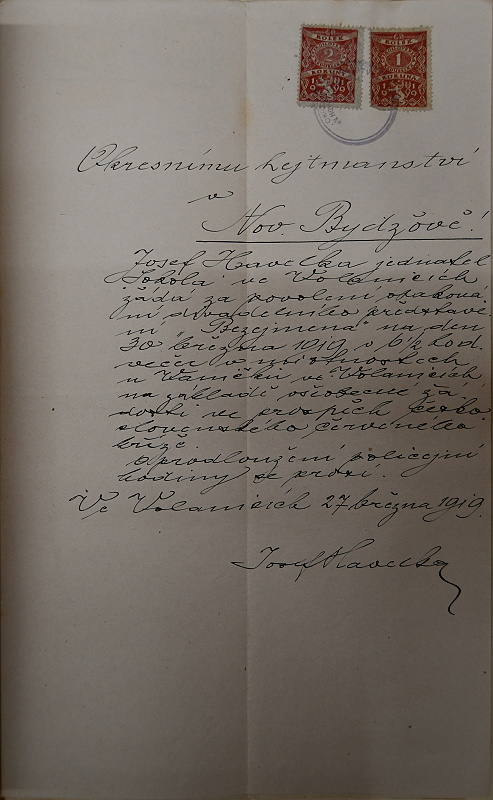 KOLEK
2
KORUNY
KOLEK
1
KORUNA
Okresnímu hejtmanství
v
Nov. Bydžově!
Josef Havelka jednatel
Sokola ve Volanicích
žádá za povolení opaková
ní divadelního představe
ní "Bezejmená" na den
30 března 1919 o 6½ hod.
večer v místnostech
u Vaníčků ve Volanicích
na základě všeobecné žá
dosti ve prospěch česko
slovenského červeného
kříže.
O prodloužení policejní
hodiny se prosí.
Ve Volanicích 27 března 1919.
Josef Havelka